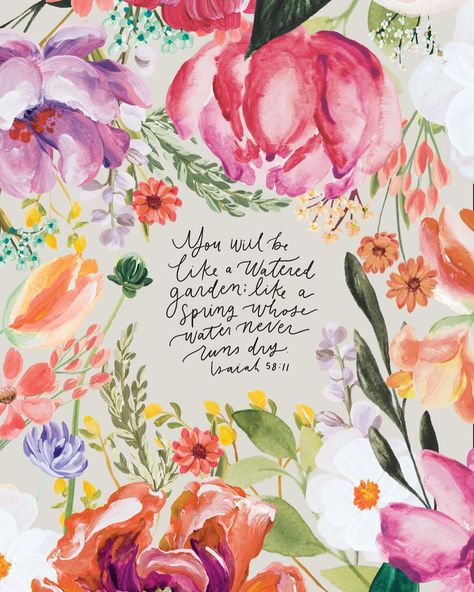 You will be
like a watered
garden; like a
spring whose
water never
runs dry.
Isaiah 58:11